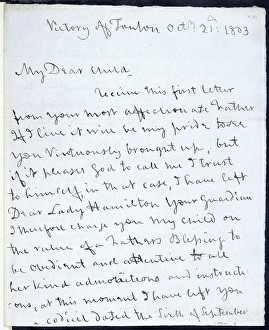 Victory off Toulon Octr. 21st: 1803
My Dear Child,
Receive this first letter
from your most affectionate Father
If I live it will be my pride to see
you Virtuously brought up, but
if it pleases God to call me I trust
to himself, in that case, I have left
Dear Lady Hamilton Your Guardian
I therefore charge you My Child on
the value of a Fathers Blessing to
be obedient and attentive to all
her kind admonitions and instructi
:ons, at this moment I have left you
a codicil dated the Sixth of September